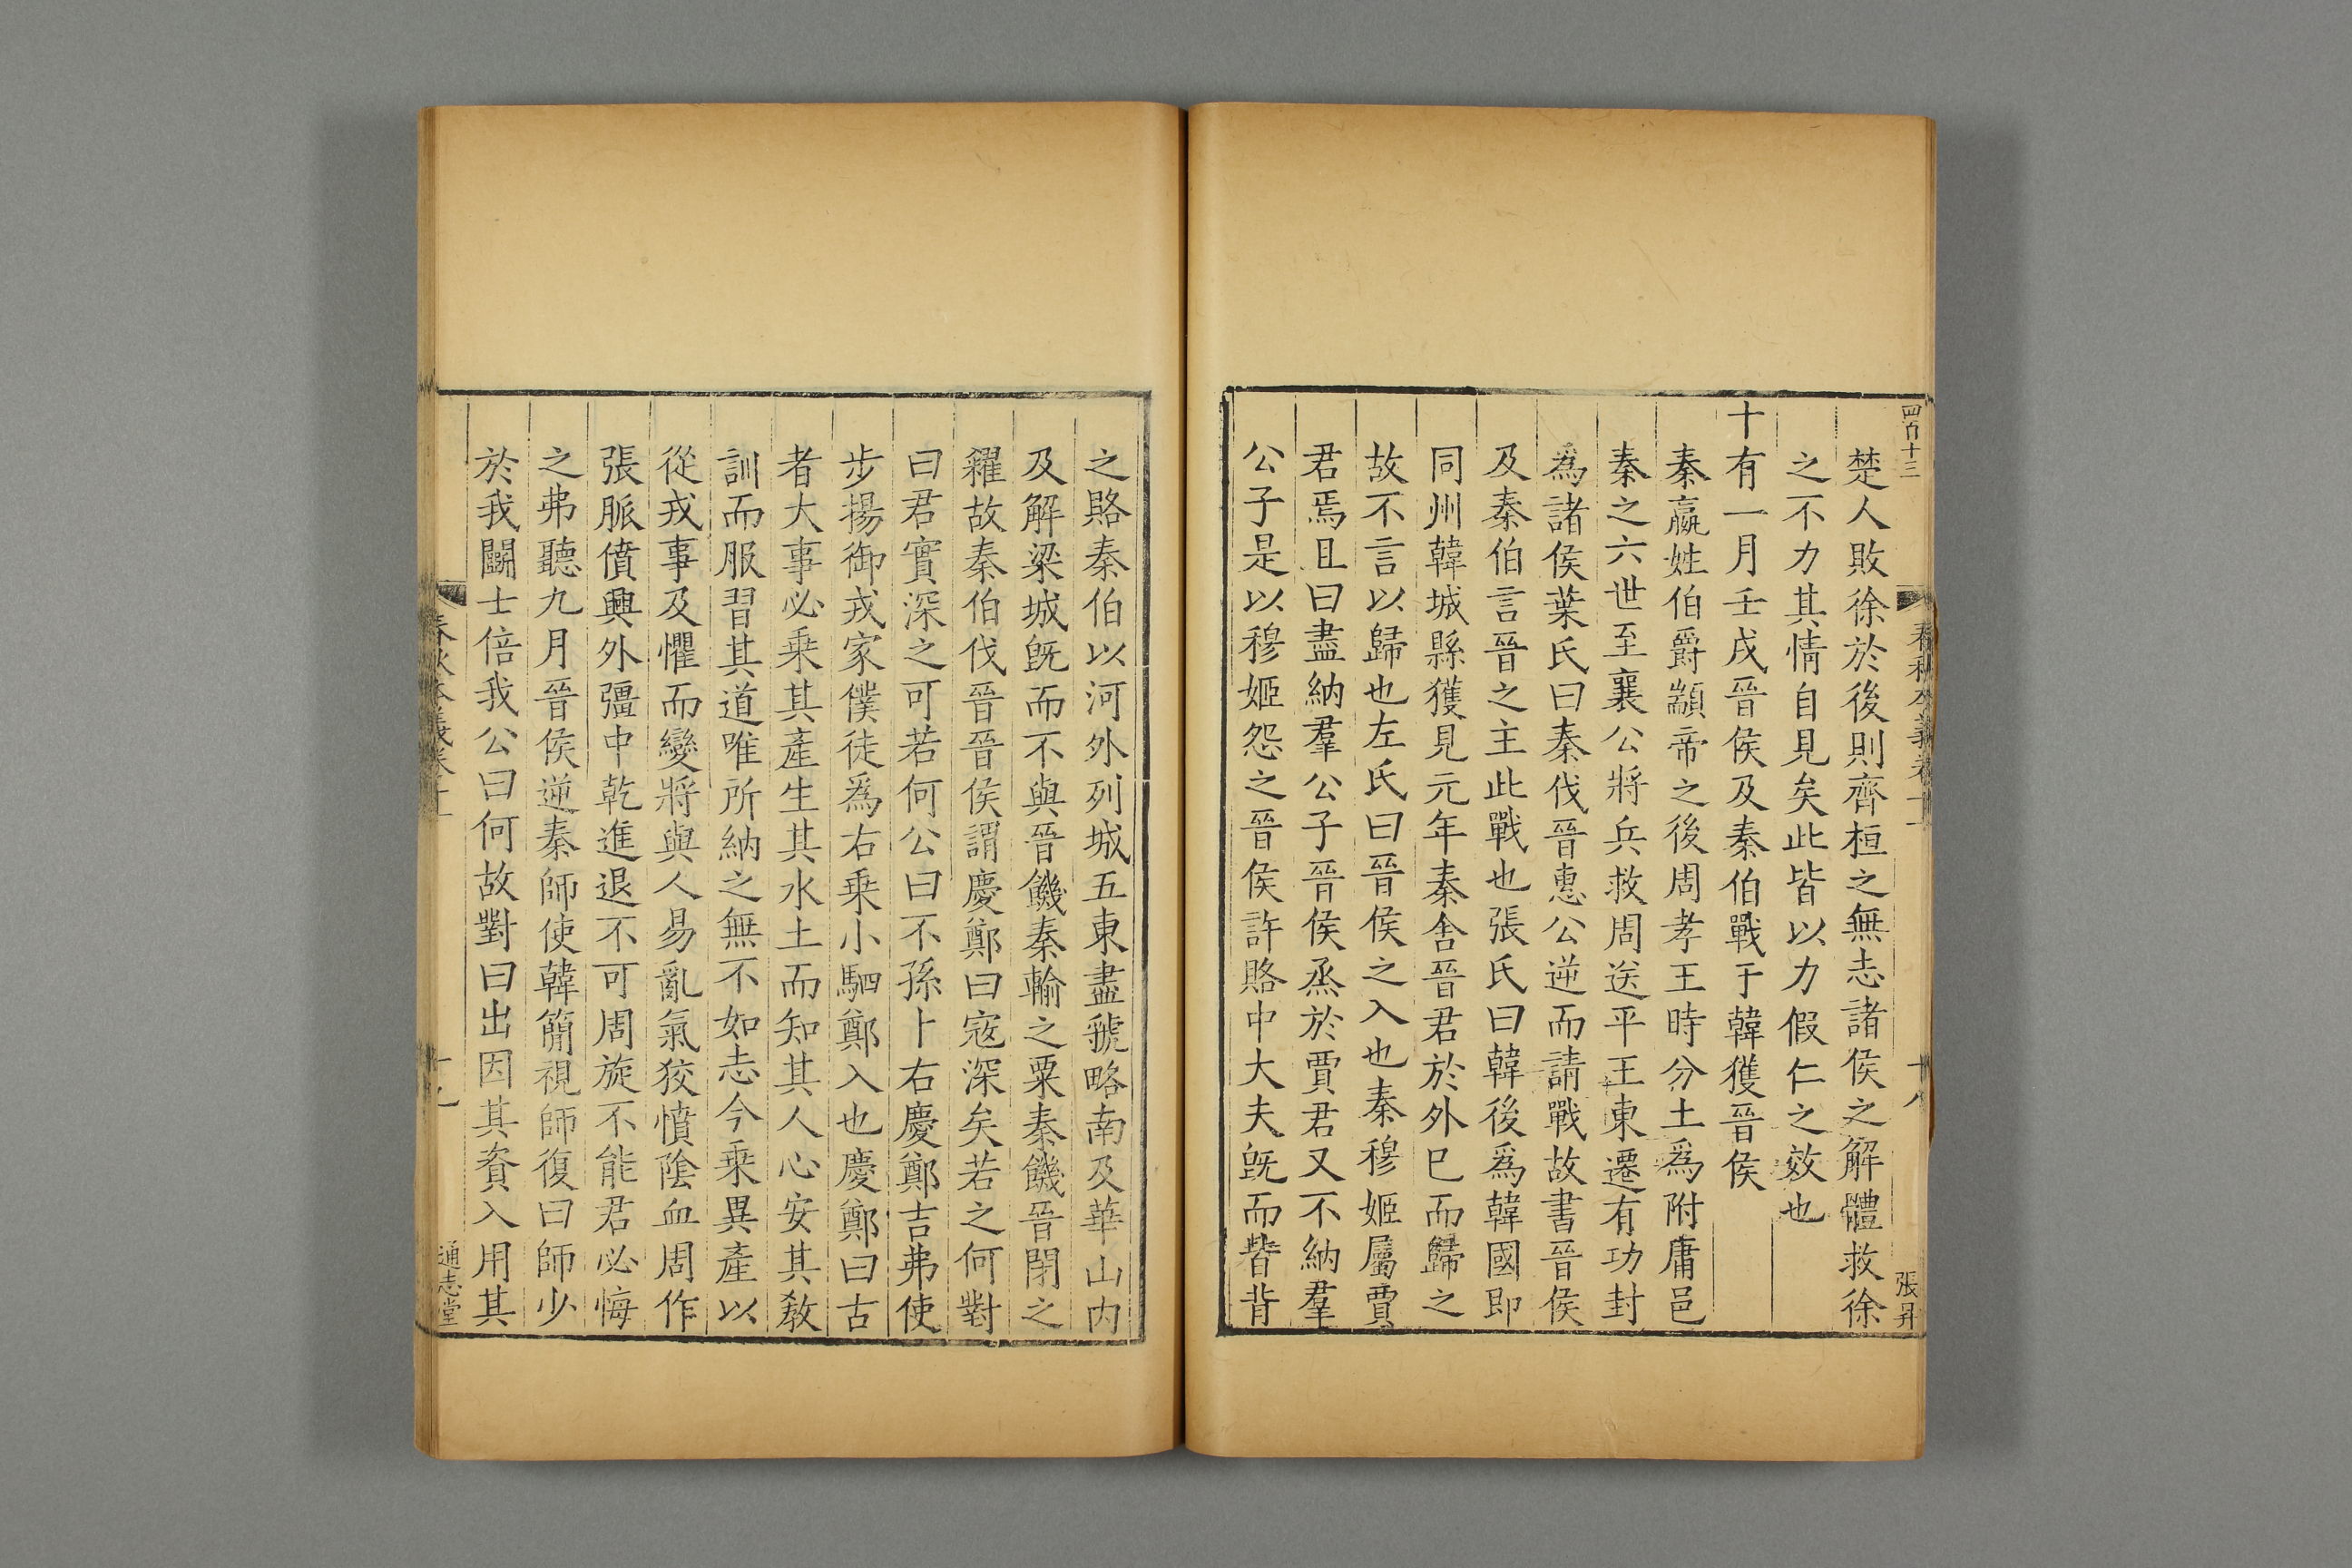 四百十三
春秋本義卷十一
十八
張昇
楚人敗徐於後則齊桓之無志諸侯之解體救徐
之不力其情自見矣此皆以力假仁之效也
十有一月壬戌晉侯及秦伯戰于韓獲晉侯
秦嬴姓伯爵顓帝之後周孝王時分土爲附庸邑
秦之六世至襄公將兵救周送平王東遷有功封
爲諸侯葉氏曰秦伐晉惠公逆而請戰故書晉侯
及秦伯言晉之主此戰也張氏曰韓後爲韓國即
同州韓城縣獲見元年秦舍晉君於外巳而歸之
故不言以歸也左氏曰晉侯之入也秦穆姬屬賈
君焉且曰盡納羣公子晉侯烝於賈君又不納羣
公子是以穆姬怨之晉侯許賂中大夫旣而皆背
之賂秦伯以河外列城五東盡虢略南及華山内
及解梁城旣而不與晉饑秦輸之粟秦饑晉閉之
糴故秦伯伐晉晉侯謂慶鄭曰寇深矣若之何對
曰君實深之可若何公曰不孫卜右慶鄭吉弗使
步揚御戎家僕徒爲右乗小駟鄭入也慶鄭曰古
者大事必乗其產生其水土而知其人心安其敎
訓而服習其道唯所納之無不如志今乗異產以
從戎事及懼而變將與人易亂氣狡憤陰血周作
張脈僨興外彊中乾進退不可周旋不能君必悔
之弗聽九月晉侯逆秦師使韓簡視師復曰師少
於我鬭士倍我公曰何故對曰出因其資入用其
春秋本義卷十一
十九
通志堂